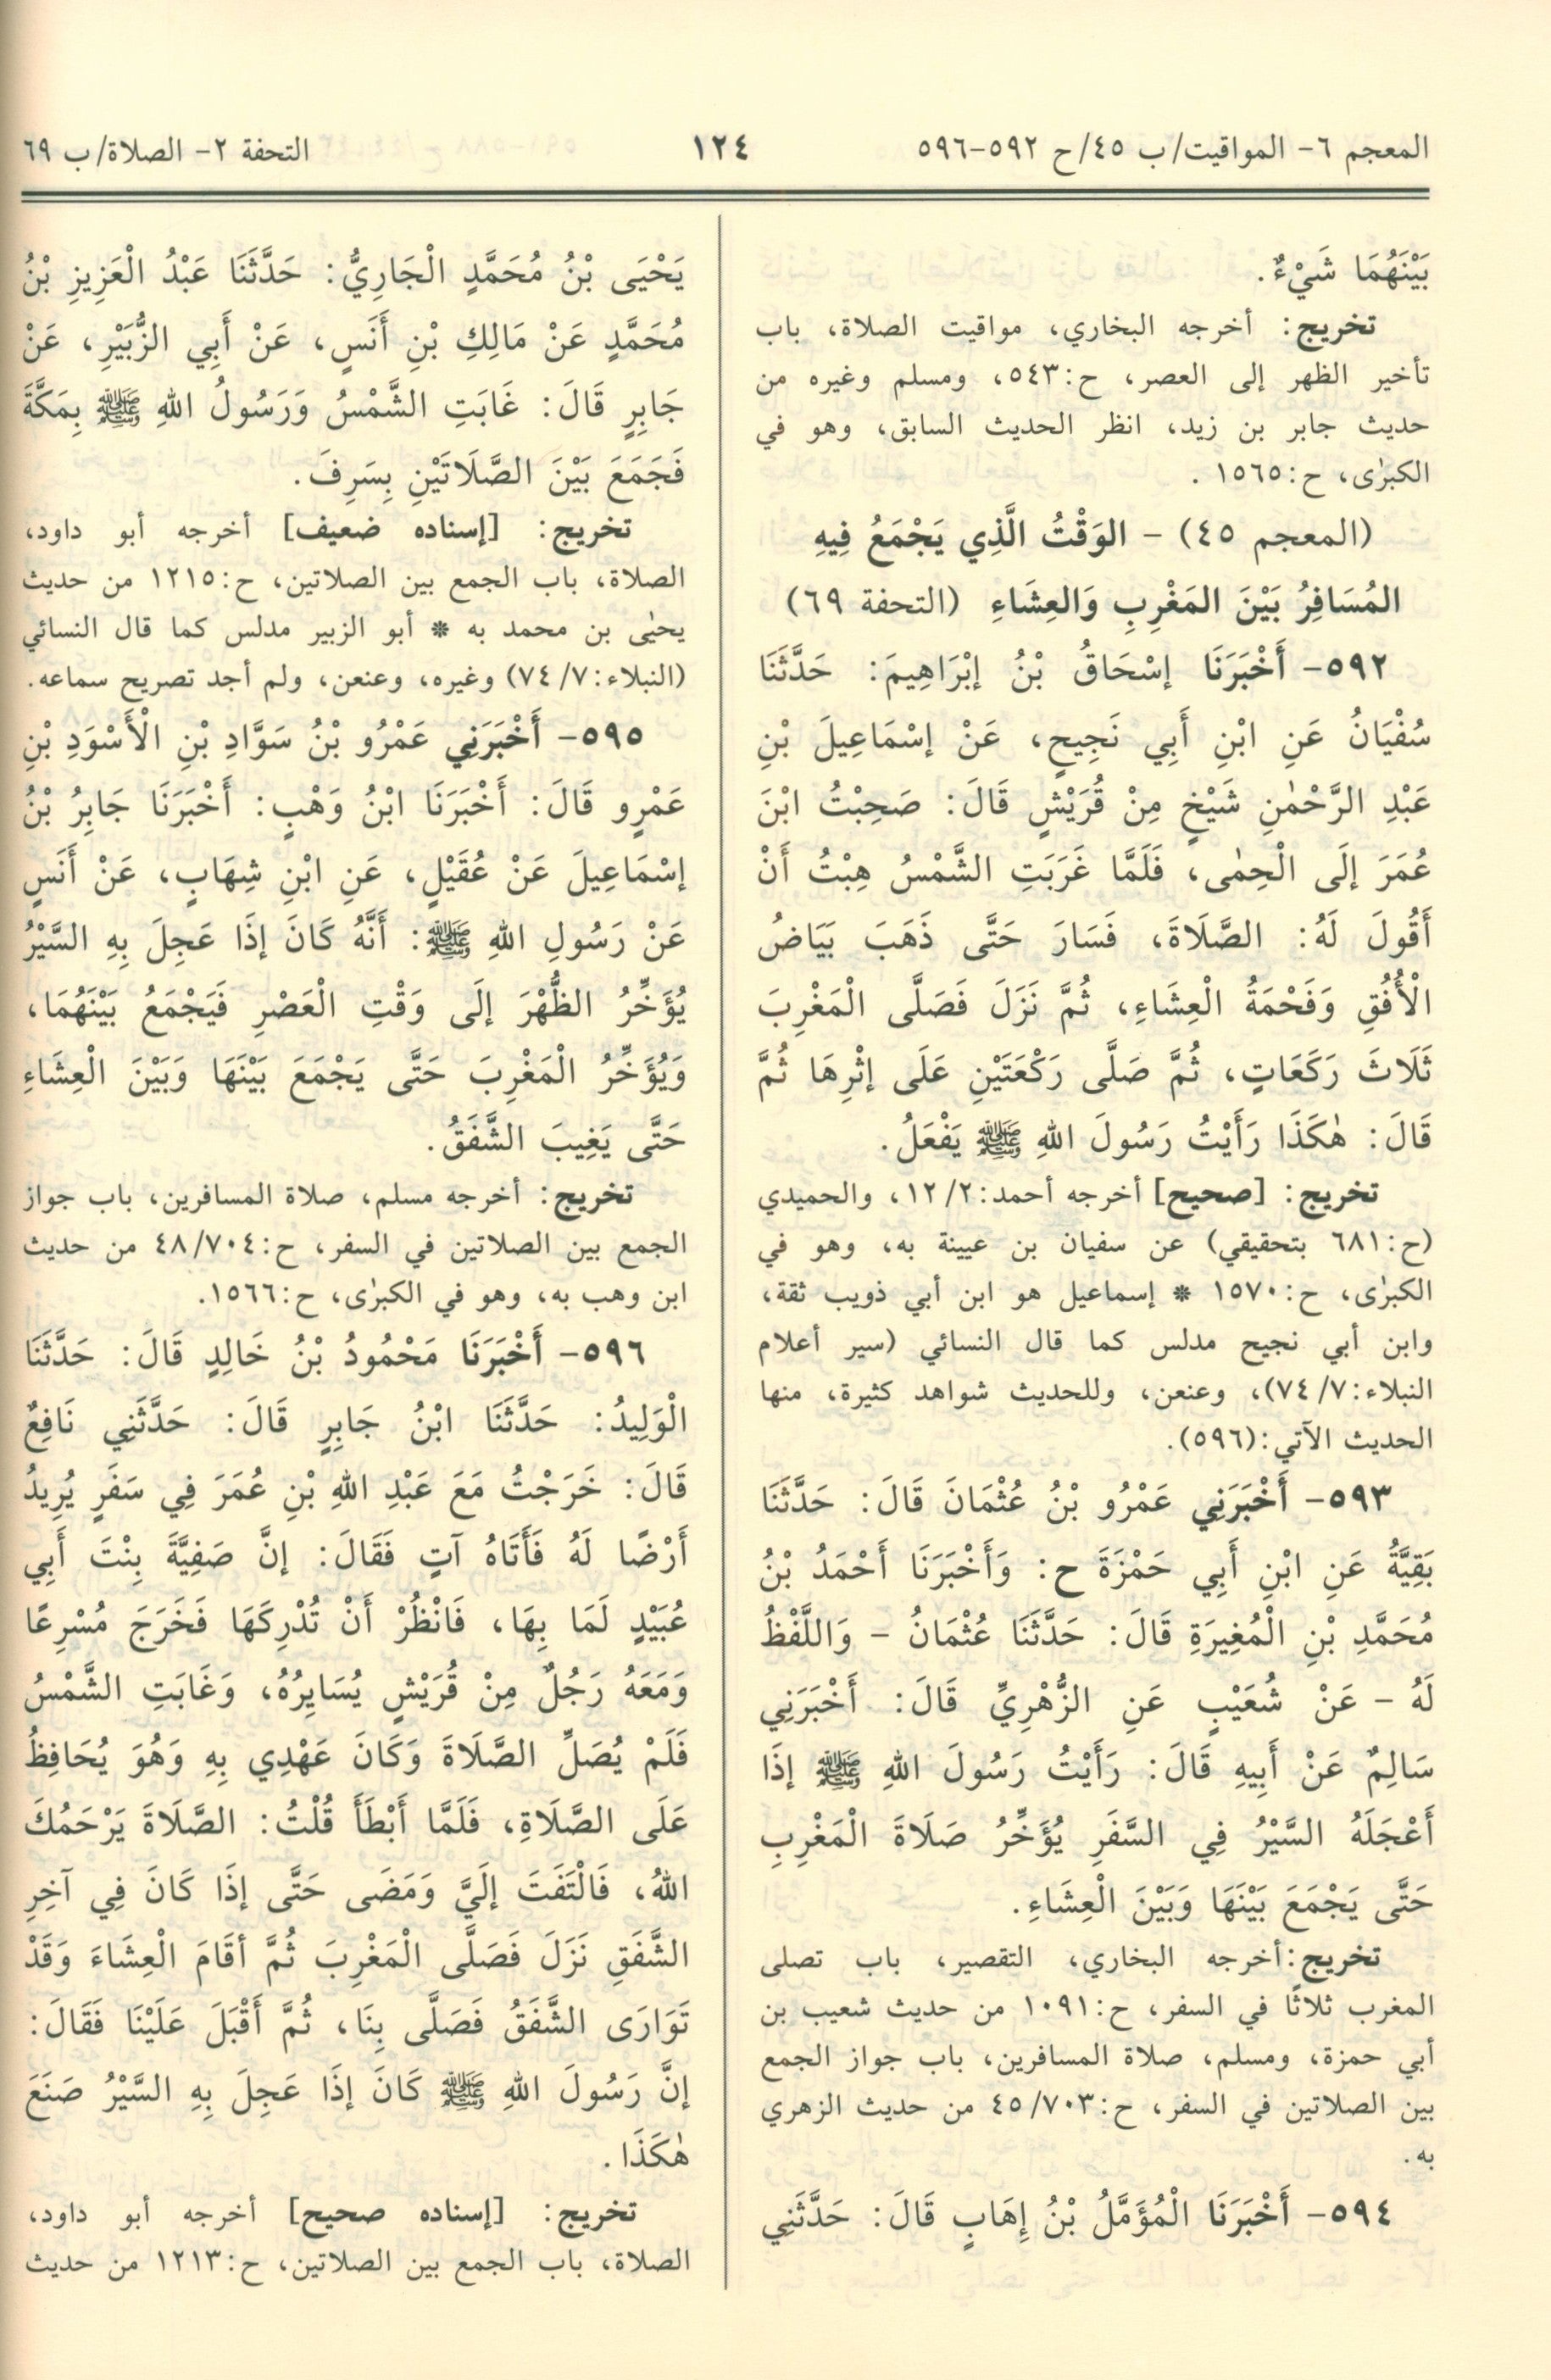 المعجم ٦- المواقيت/ ب ٤٥/ ح ٥٩٢-٥٩٦
١٢٤
التحفة ٢- الصلاة/ ب ٦٩
بَيْنَهُمَا شَيْءٌ.
تخريج: أخرجه البخاري، مواقيت الصلاة، باب
تأخير الظهر إلى العصر، ح:٥٤٣، ومسلم وغيره من
حديث جابر بن زيد، انظر الحديث السابق، وهو في
الكبرٰى، ح:١٥٦٥ .
(المعجم ٤٥) - الوَقْتُ الَّذِي يَجْمَعُ فِيهِ
المُسَافِرُ بَيْنَ المَغْرِبِ وَالعِشَاءِ (التحفة ٦٩)
٥٩٢- أَخْبَرَنَا إِسْحَاقُ بْنُ إِبْرَاهِيمَ: حَدَّثَنَا
سُفْيَانُ عَنِ ابْنِ أَبِي نَجِيحٍ، عَنْ إِسْمَاعِيلَ بْنِ
عَبْدِ الرَّحْمٰنِ شَيْخٍ مِنْ قُرَيْشٍ قَالَ: صَحِبْتُ ابْنَ
عُمَرَ إِلَى الْحِمٰى، فَلَمَّا غَرَبَتِ الشَّمْسُ هِبْتُ أَنْ
أَقُولَ لَهُ: الصَّلَاةَ، فَسَارَ حَتَّى ذَهَبَ بَيَاضُ
الْأُفُقِ وَفَحْمَةُ الْعِشَاءِ، ثُمَّ نَزَلَ فَصَلَّى الْمَغْرِبَ
ثَلَاثَ رَكَعَاتٍ، ثُمَّ صَلَّى رَكْعَتَيْنِ عَلَى إِثْرِهَا ثُمَّ
قَالَ: هٰكَذَا رَأَيْتُ رَسُولَ اللهِ ﷺ يَفْعَلُ.
تخريج: [صحيح] أخرجه أحمد:٢/ ١٢، والحميدي
(ح:٦٨١ بتحقيقي) عن سفيان بن عيينة به، وهو في
الكبرٰى، ح:١٥٧٠ * إسماعيل هو ابن أبي ذويب ثقة،
وابن أبي نجيح مدلس كما قال النسائي (سير أعلام
النبلاء:٧/ ٧٤)، وعنعن، وللحديث شواهد كثيرة، منها
الحديث الآتي:(٥٩٦).
٥٩٣- أَخْبَرَنِي عَمْرُو بْنُ عُثْمَانَ قَالَ: حَدَّثَنَا
بَقِيَّةُ عَنِ ابْنِ أَبِي حَمْزَةَ ح: وَأَخْبَرَنَا أَحْمَدُ بْنُ
مُحَمَّدِ بْنِ الْمُغِيرَةِ قَالَ: حَدَّثَنَا عُثْمَانُ - وَاللَّفْظُ
لَهُ - عَنْ شُعَيْبٍ عَنِ الزُّهْرِيِّ قَالَ: أَخْبَرَنِي
سَالِمٌ عَنْ أَبِيهِ قَالَ: رَأَيْتُ رَسُولَ اللهِ ﷺ إِذَا
أَعْجَلَهُ السَّيْرُ فِي السَّفَرِ يُؤَخِّرُ صَلَاةَ الْمَغْرِبِ
حَتَّى يَجْمَعَ بَيْنَهَا وَبَيْنَ الْعِشَاءِ.
تخريج:أخرجه البخاري، التقصير، باب تصلى
المغرب ثلاثًا في السفر، ح:١٠٩١ من حديث شعيب بن
أبي حمزة، ومسلم، صلاة المسافرين، باب جواز الجمع
بين الصلاتين في السفر، ح:٧٠٣/ ٤٥ من حديث الزهري
به.
٥٩٤- أَخْبَرَنَا الْمُؤَمَّلُ بْنُ إِهَابٍ قَالَ: حَدَّثَنِي
يَحْيَى بْنُ مُحَمَّدٍ الْجَارِيُّ: حَدَّثَنَا عَبْدُ الْعَزِيزِ بْنُ
مُحَمَّدٍ عَنْ مَالِكِ بْنِ أَنَسٍ، عَنْ أَبِي الزُّبَيْرِ، عَنْ
جَابِرٍ قَالَ: غَابَتِ الشَّمْسُ وَرَسُولُ اللهِ ﷺ بِمَكَّةَ
فَجَمَعَ بَيْنَ الصَّلَاتَيْنِ بِسَرِفَ.
تخريج: [إسناده ضعيف] أخرجه أبو داود،
الصلاة، باب الجمع بين الصلاتين، ح:١٢١٥ من حديث
يحيٰى بن محمد به * أبو الزبير مدلس كما قال النسائي
(النبلاء:٧/ ٧٤) وغيره، وعنعن، ولم أجد تصريح سماعه.
٥٩٥- أَخْبَرَنِي عَمْرُو بْنُ سَوَّادِ بْنِ الْأَسْوَدِ بْنِ
عَمْرٍو قَالَ: أَخْبَرَنَا ابْنُ وَهْبٍ: أَخْبَرَنَا جَابِرُ بْنُ
إِسْمَاعِيلَ عَنْ عُقَيْلٍ، عَنِ ابْنِ شِهَابٍ، عَنْ أَنَسٍ
عَنْ رَسُولِ اللهِ ﷺ: أَنَّهُ كَانَ إِذَا عَجِلَ بِهِ السَّيْرُ
يُؤَخِّرُ الظُّهْرَ إِلَى وَقْتِ الْعَصْرِ فَيَجْمَعُ بَيْنَهُمَا،
وَيُؤَخِّرُ الْمَغْرِبَ حَتَّى يَجْمَعَ بَيْنَهَا وَبَيْنَ الْعِشَاءِ
حَتَّى يَغِيبَ الشَّفَقُ.
تخريج: أخرجه مسلم، صلاة المسافرين، باب جواز
الجمع بين الصلاتين في السفر، ح:٧٠٤/ ٤٨ من حديث
ابن وهب به، وهو في الكبرٰى، ح:١٥٦٦.
٥٩٦- أَخْبَرَنَا مَحْمُودُ بْنُ خَالِدٍ قَالَ: حَدَّثَنَا
الْوَلِيدُ: حَدَّثَنَا ابْنُ جَابِرٍ قَالَ: حَدَّثَنِي نَافِعٌ
قَالَ: خَرَجْتُ مَعَ عَبْدِ اللهِ بْنِ عُمَرَ فِي سَفَرٍ يُرِيدُ
أَرْضًا لَهُ فَأَتَاهُ آتٍ فَقَالَ: إِنَّ صَفِيَّةَ بِنْتَ أَبِي
عُبَيْدٍ لَمَا بِهَا، فَانْظُرْ أَنْ تُدْرِكَهَا فَخَرَجَ مُسْرِعًا
وَمَعَهُ رَجُلٌ مِنْ قُرَيْشٍ يُسَايِرُهُ، وَغَابَتِ الشَّمْسُ
فَلَمْ يُصَلِّ الصَّلَاةَ وَكَانَ عَهْدِي بِهِ وَهُوَ يُحَافِظُ
عَلَى الصَّلَاةِ، فَلَمَّا أَبْطَأَ قُلْتُ: الصَّلَاةَ يَرْحَمُكَ
اللهُ، فَالْتَفَتَ إِلَيَّ وَمَضَى حَتَّى إِذَا كَانَ فِي آخِرِ
الشَّفَقِ نَزَلَ فَصَلَّى الْمَغْرِبَ ثُمَّ أقَامَ الْعِشَاءَ وَقَدْ
تَوَارَى الشَّفَقُ فَصَلَّى بِنَا، ثُمَّ أَقْبَلَ عَلَيْنَا فَقَالَ:
إِنَّ رَسُولَ اللهِ ﷺ كَانَ إِذَا عَجِلَ بِهِ السَّيْرُ صَنَعَ
هٰكَذَا.
تخريج: [إسناده صحيح] أخرجه أبو داود،
الصلاة، باب الجمع بين الصلاتين، ح:١٢١٣ من حديث